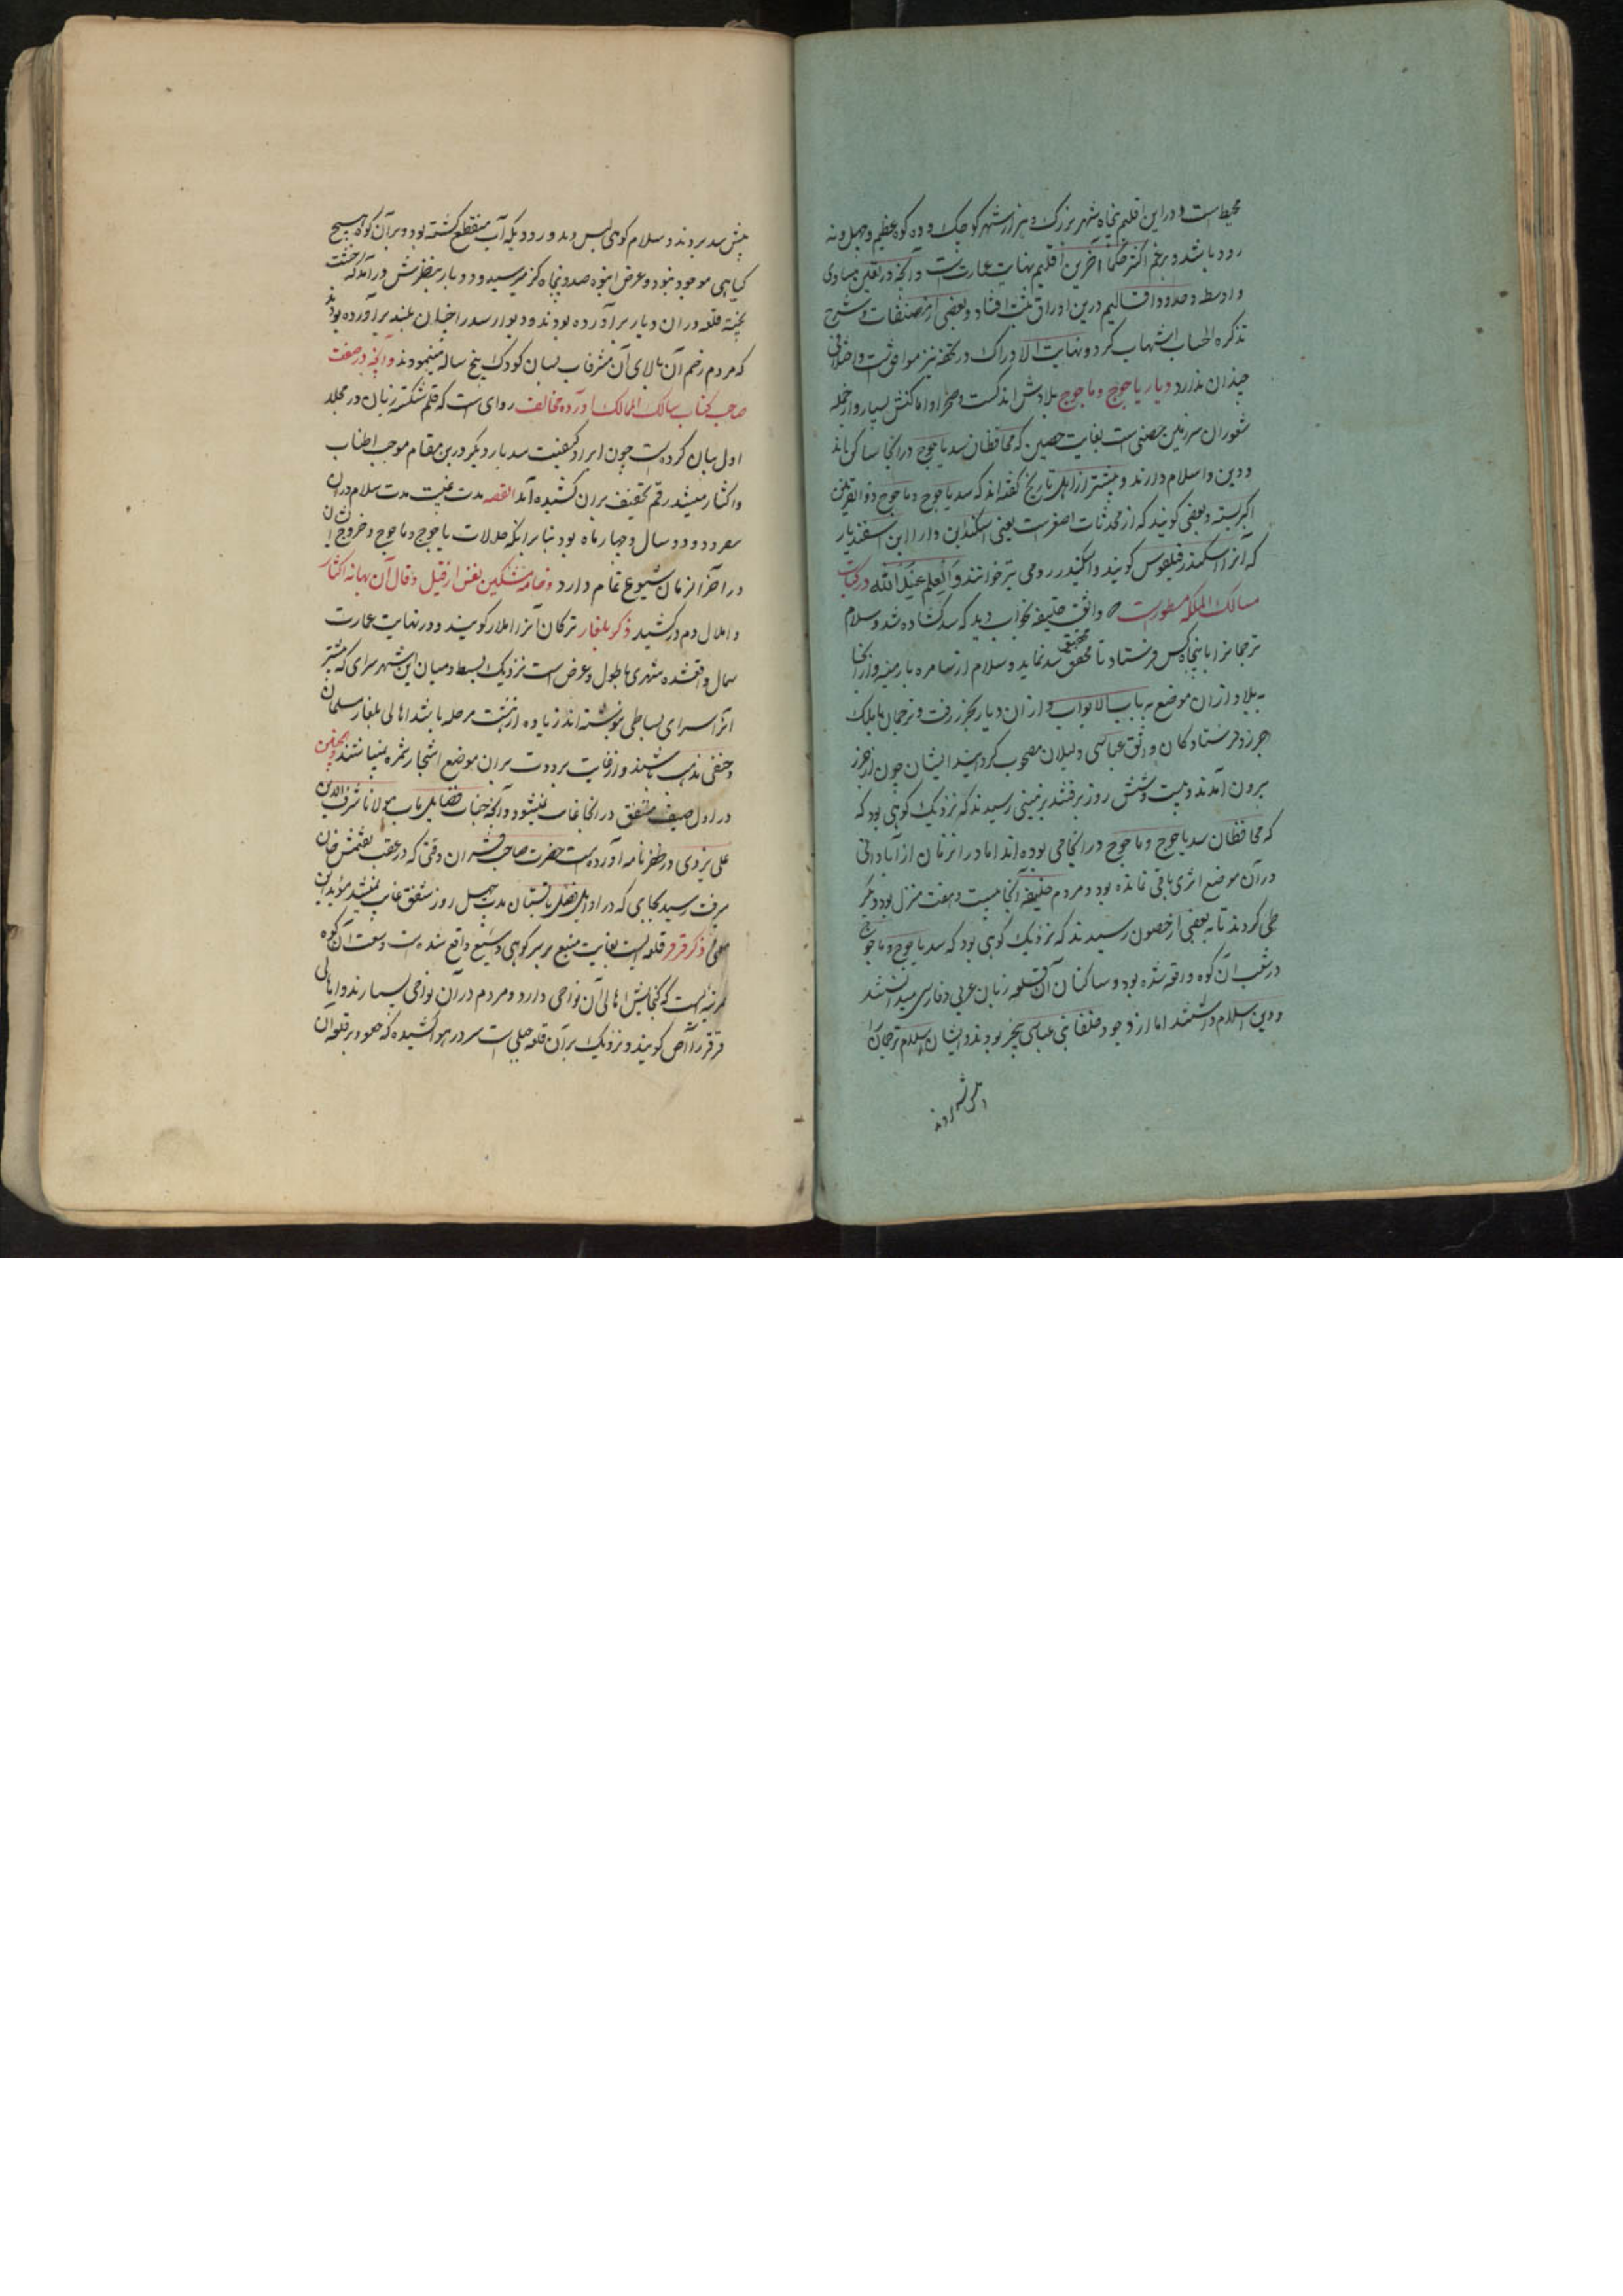 محیط است و در این اقلیم پنجاه شهر بزرک و هزار شهر کوچک و ده کوه عظیم و چهل و نه
رود باشد و برغم اکثر حکما آخرین اقلیم نهایت عمارت است و آنچه در تعیین مبادی
و اوسط و حدود اقالیم درین اوراق ثبت افتاد و بعضی از مصنفات و شرح
تذکره الحساب اشهاب کرد و نهایت الادراک در تحفه نیز موافق است و اختلافی
چندان ندارد دیار یاجوج و ماجوج بلادش اندکست و صحرا و اماکنش بسیار و از جمله
ثغور ان سرزمین حصنی است بغایت حصین که محافظان سد یاجوج در انجا ساکن اند
و دین و اسلام دارند و بیشتر از اهل تاریخ گفته اند که سد یاجوج و ماجوج ذوالقرنین
اکبر بسته و بعضی کویند که از محدثات اصغر است یعنی اسکندر ابن دارا ابن اسفندیار
که آنرا اسکندر فیلقوس کویند و اسکندر رومی نیز خوانند و العلم عند الله در کتاب
مسالک الممالک مسطور است که واثق خلیفه بخواب دید که سد کشاده شد و سلام
ترجمانرا با پنجاه کس فرستاد تا تحقیق سد نماید و سلام از سامره بارمنیه و از انجا
و از ان موضع به باب الابواب و از ان دیار بخزر رفت و ترجمان با ملک
خزر فرستادکان واثق عباسی دلیلان مصحوب کردانید ایشان چون از خزر
برون آمدند و بیست و شش روز برفتند بزمینی رسیدند که نزدیک کوهی بود که
که محافظان سد یاجوج و ماجوج در انجا می بوده اند اما در انزمان از آبادانی
در آن موضع اثری باقی نمانده بود و مردم خلیفه آنجا بیست و هفت منزل بود دیگر
طی کردند تا به بعضی از حصون رسیدند که نزدیک کوهی بود که سد یاجوج و ماجوج
در شعب آن کوه واقع شده بود و ساکنان آن قلعه زبان عربی و فارسی میدانستند
و دین اسلام داشتند اما از وجود خلفا بنی عباسی بیخبر بودند و ایشان سلام ترجمان را
پیش سد بردند و سلام کوهی املس دید و رود یکه آب منقطع کشته بود و بر آن کوه هیچ
کیاهی موجود نبود و عرض انبوه صد و پنجاه کز میرسید و دو بار بنظرش در آمد که از خشت
پخته قلعه در ان دیار برآورده بودند و دیوار سد را چنان بلند برآورده بودند
که مردم زخم آن بالای آن مشرفات بسان کودک پنج ساله مینمودند و آنچه در صفت
صاحب کتاب مسالک الممالک آورده مخالف روایت است که قلم شکسته زبان در مجلد
اول بیان کرده است چون ایراد کیفیت سد بار دیکر درین مقام موجب اطناب
و اکثار میشد رقم تخفیف بران کشیده آمد القصه مدت غیبت مدت سلام در ان
سفر دو سال و چهار ماه بود بنابر انکه حالات یاجوج و ماجوج و خروج ایشان
در آخر الزمان شیوع تمام دارد و خامه مشکین نفس از قیل و قال آن بهانه اکثار
و املال دم در کشید ذکر بلغار ترکان آنرا املار کویند و در نهایت عمارت
شمال واقعشده شهری با طول و عرض است نزدیک ابسط و میان این شهر سرای که بیشتر
انرا سرای بساطی نوشته اند زیاده از بیست مرحله باشد اهالی بلغار مسلمان
و حنفی مذهب باشند و از غایت برودت بران موضع اشجار مثمره نمیباشد و همچنین
در اول صیف شفق در انجا غایب نمیشود و آنچه جناب فضایل مآب مولانا شرف الدین
علی یزدی در ظفرنامه آورده است حضرت صاحب قران وقتی که در عقب تقتمش خان
میرفت رسید بجایی که در اوایل فصل تابستان مدت چهل روز شفق غایب نمیشد مؤید این
معنی ذکر قرقر قلعه ایست بغایت منیع بر سر کوهی وسیع واقع شده است وسعت آن کوه
بمرتبه ایست که کنجایش اهالی آن نواحی دارد و مردم در آن نواحی بسیارند و اهالی
قرقر را آص کویند و نزدیک بر آن قلعه جبلی است سر در هوا کشیده که صعود بر قله آن